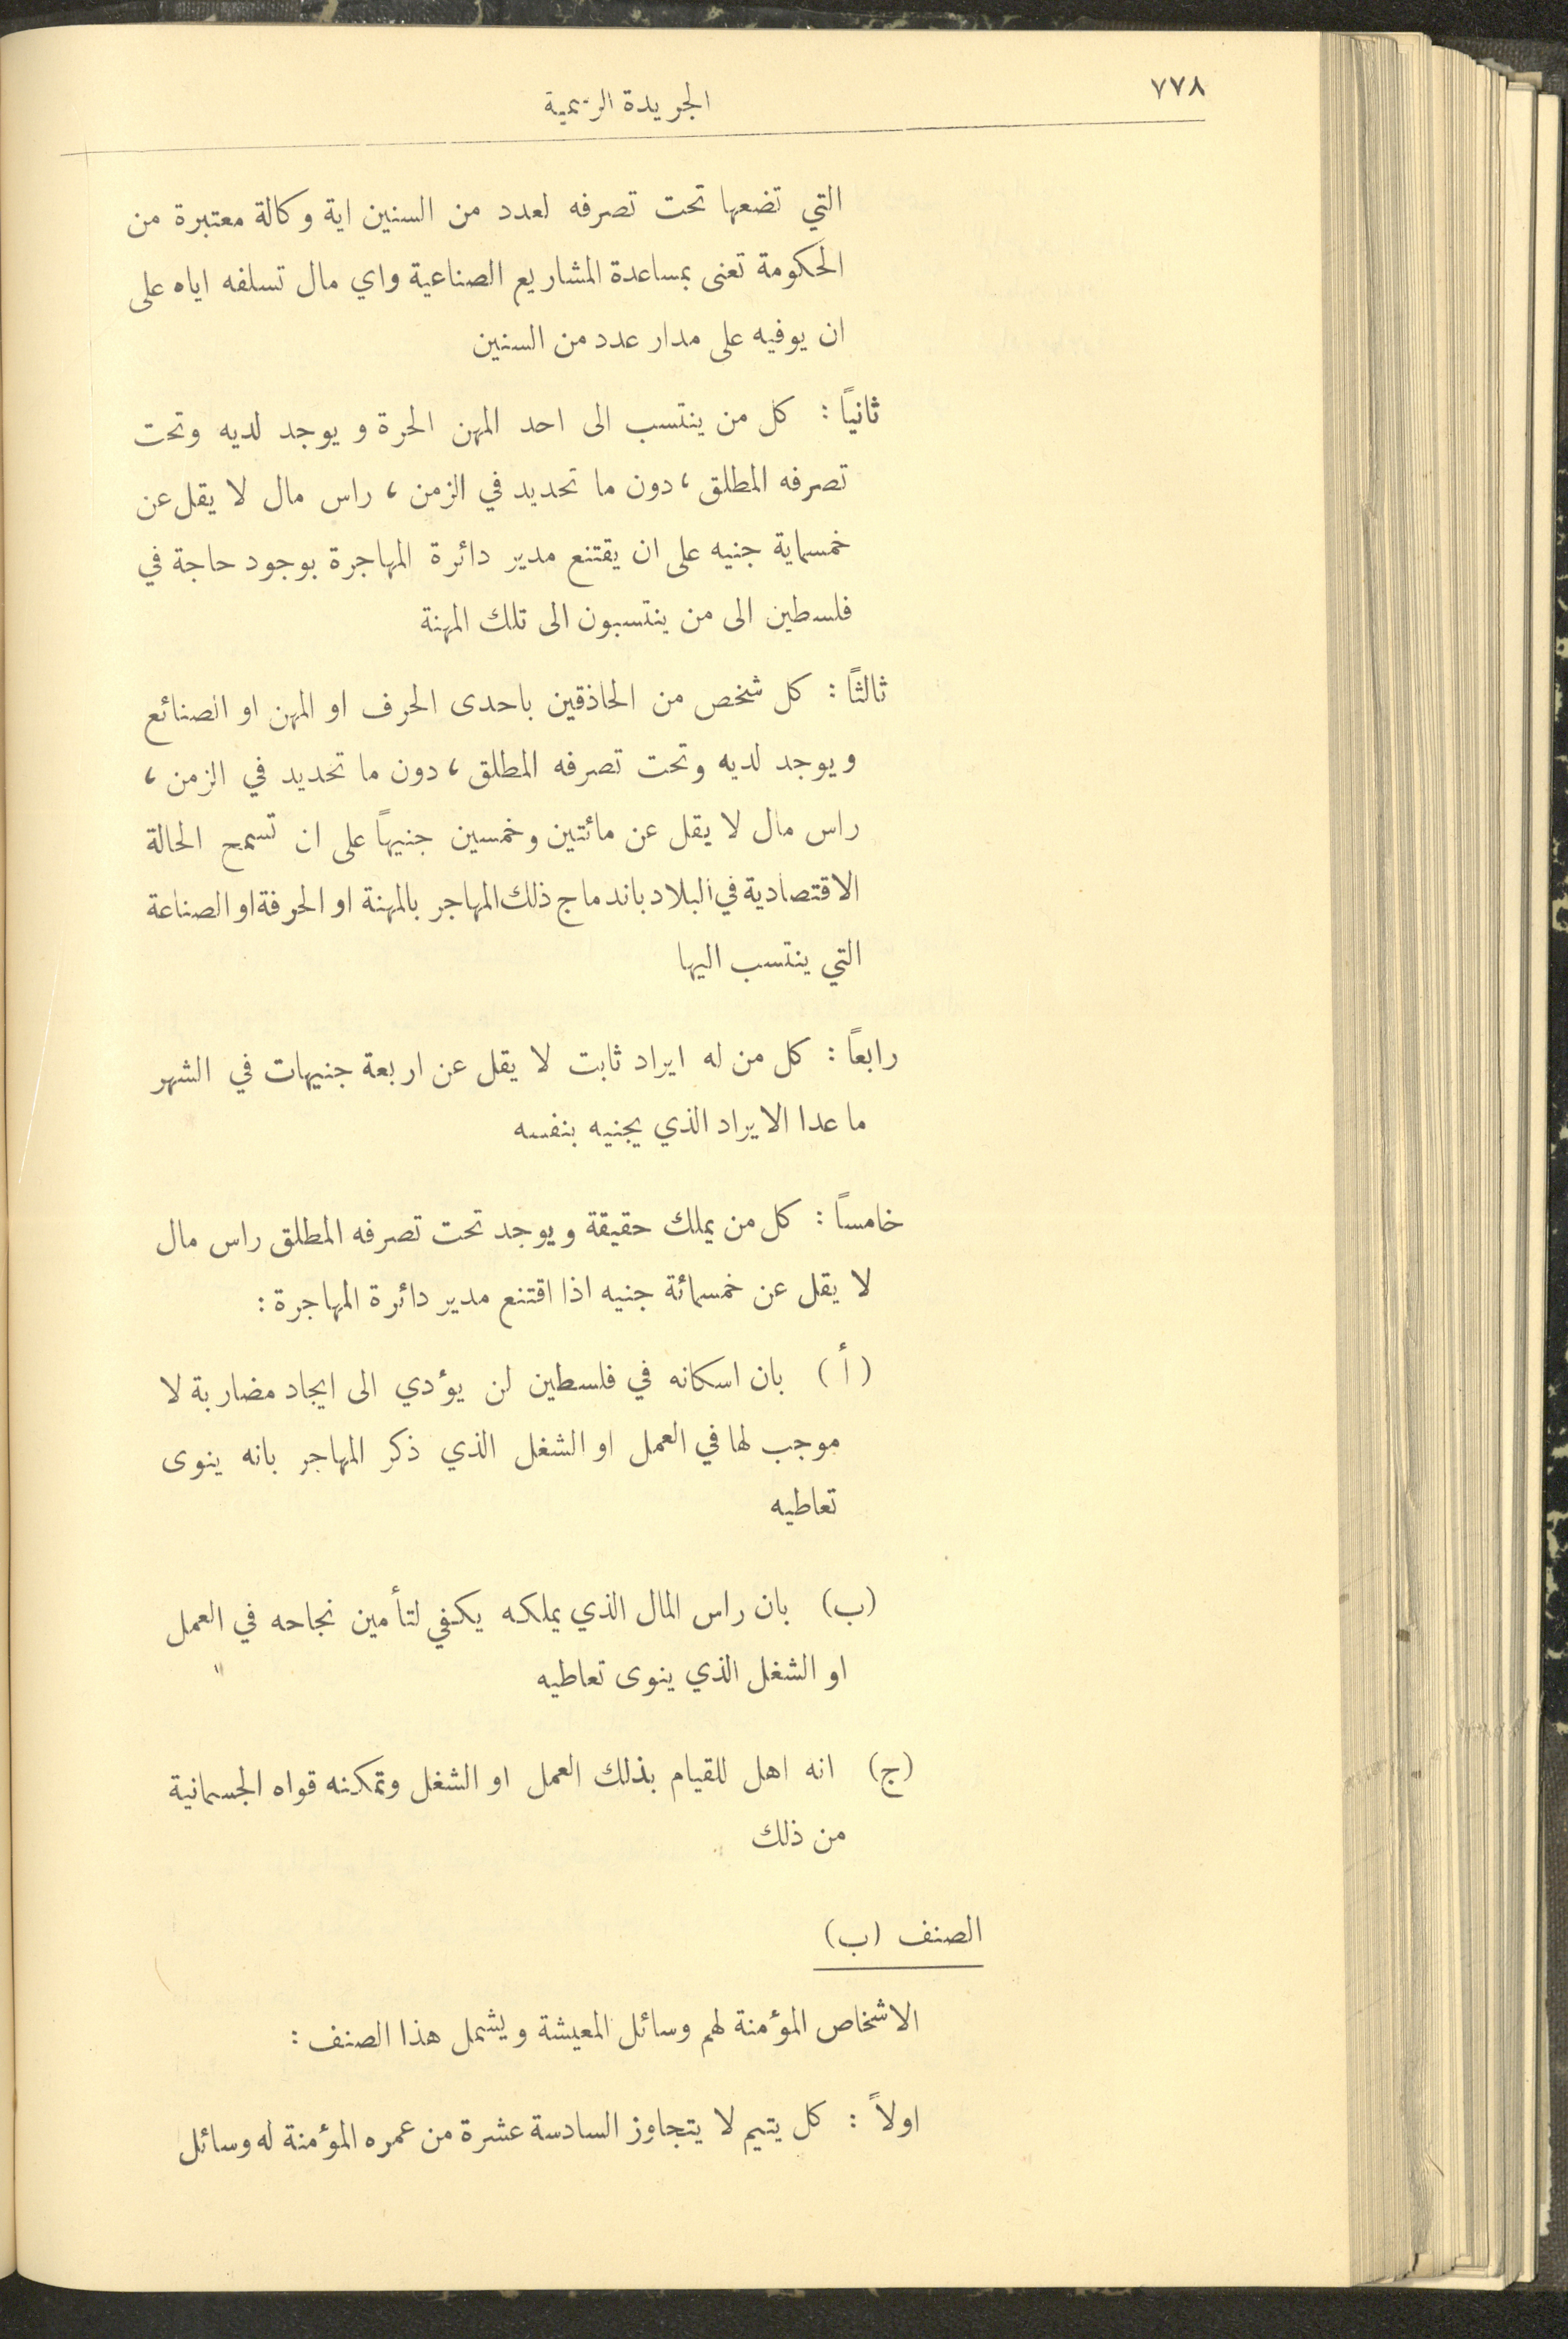 ٧٧٨
الجريدة الرسمية
التي تضعها تحت تصرفه لعدد من السنين اية وكالة معتبرة من
الحكومة تعنى بمساعدة المشاريع الصناعية واي مال تسلفه اياه على
ان يوفيه على مدار عدد من السنين
ثانياً : كل من ينتسب الى احد المهن الحرة ويوجد لديه وتحت
تصرفه المطلق ، دون ما تحديد في الزمن ، راس مال لا يقل عن
خمسماية جنيه على ان يقتنع مدير دائرة المهاجرة بوجود حاجة في
فلسطين الى من ينتسبون الى تلك المهنة
ثالثاً : كل شخص من الحاذقين باحدى الحرف او المهن او الصنائع
ويوجد لديه وتحت تصرفه المطلق ، دون ما تحديد في الزمن ،
راس مال لا يقل عن مائتين وخمسين جنيهاً على ان تسمح الحالة
الاقتصادية في البلاد باندماج ذلك المهاجر بالمهنة او الحرفة او الصناعة
التي ينتسب اليها
رابعاً : كل من له ايراد ثابت لا يقل عن اربعة جنيهات في الشهر
ما عدا الايراد الذي يجنيه بنفسه
خامساً : كل من يملك حقيقة ويوجد تحت تصرفه المطلق راس مال
لا يقل عن خمسمائة جنيه اذا اقتنع مدير دائرة المهاجرة :
(أ) بان اسكانه في فلسطين لن يؤدي الى ايجاد مضاربة لا
موجب لها في العمل او الشغل الذي ذكر المهاجر بانه ينوى
تعاطيه
(ب) بان راس المال الذي يملكه يكفي لتأمين نجاحه في العمل
او الشغل الذي ينوى تعاطيه
(ج) انه اهل للقيام بذلك العمل او الشغل وتمكنه قواه الجسمانية
من ذلك
الصنف (ب)
الاشخاص المؤمنة لهم وسائل المعيشة ويشمل هذا الصنف :
اولاً : كل يتيم لا يتجاوز السادسة عشرة من عمره المؤمنة له وسائل